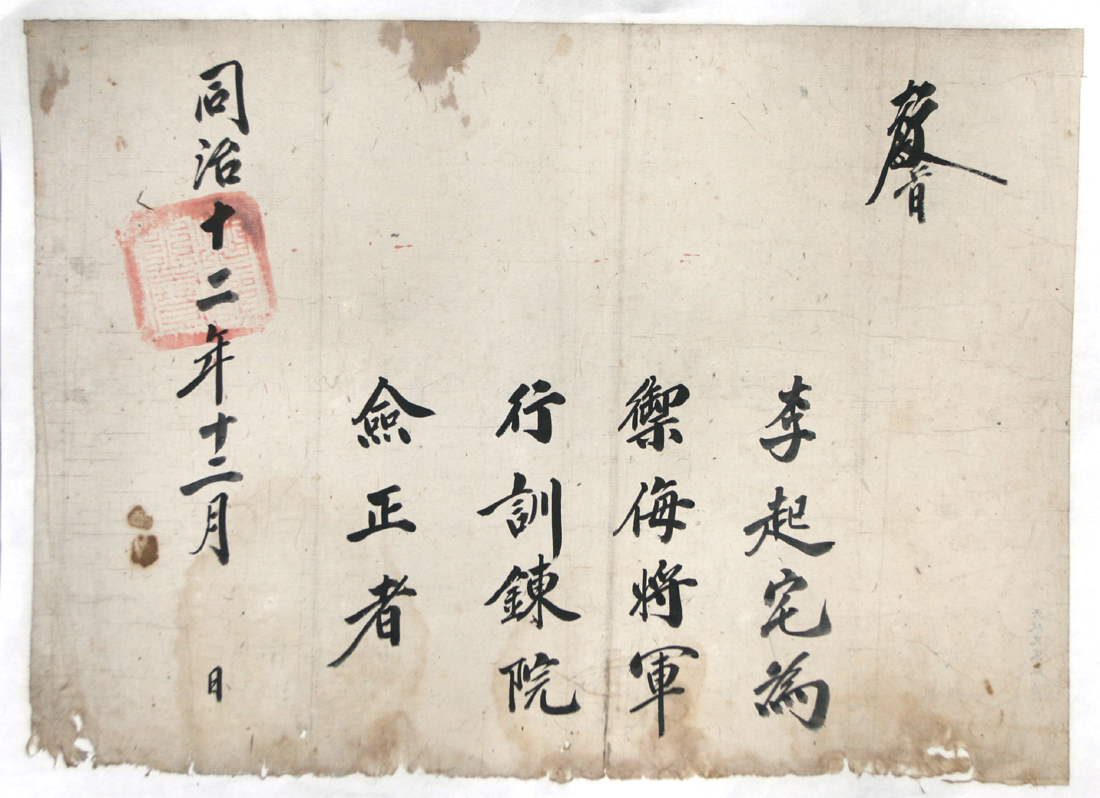 敎旨
李起宅為
禦侮將軍
行訓鍊院
僉正者
同治十二年十二月 日